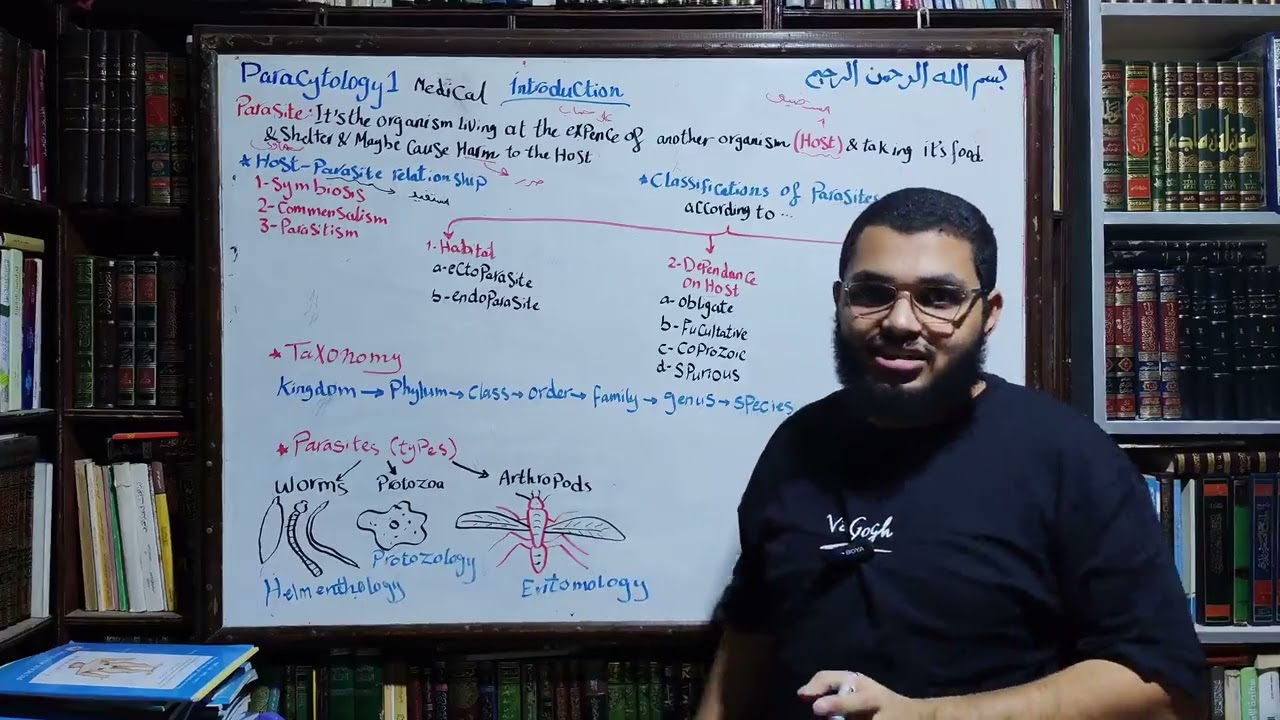 Paracytology 1 Medical Introduction
بسم الله الرحمن الرحيم
Parasite: It's the organism living at the expence of another organism (Host) & taking it's food
& Shelter & Maybe Cause Harm to the Host
* Host-Parasite relationship
1-Symbiosis
2-Commensalism
3-Parasitism
* Classifications of Parasites
according to ...
1-Habitat
a-ectoParasite
b-endoParasite
2-Dependance
on Host
a-obligate
b-Fucultative
c-Coprozoic
d-Spurious
* Taxonomy
Kingdom → Phylum → Class → order → family → genus → species
* Parasites (types)
Worms Protozoa Arthropods
Helmenthology Protozology Entomology
Gogh
BOYA